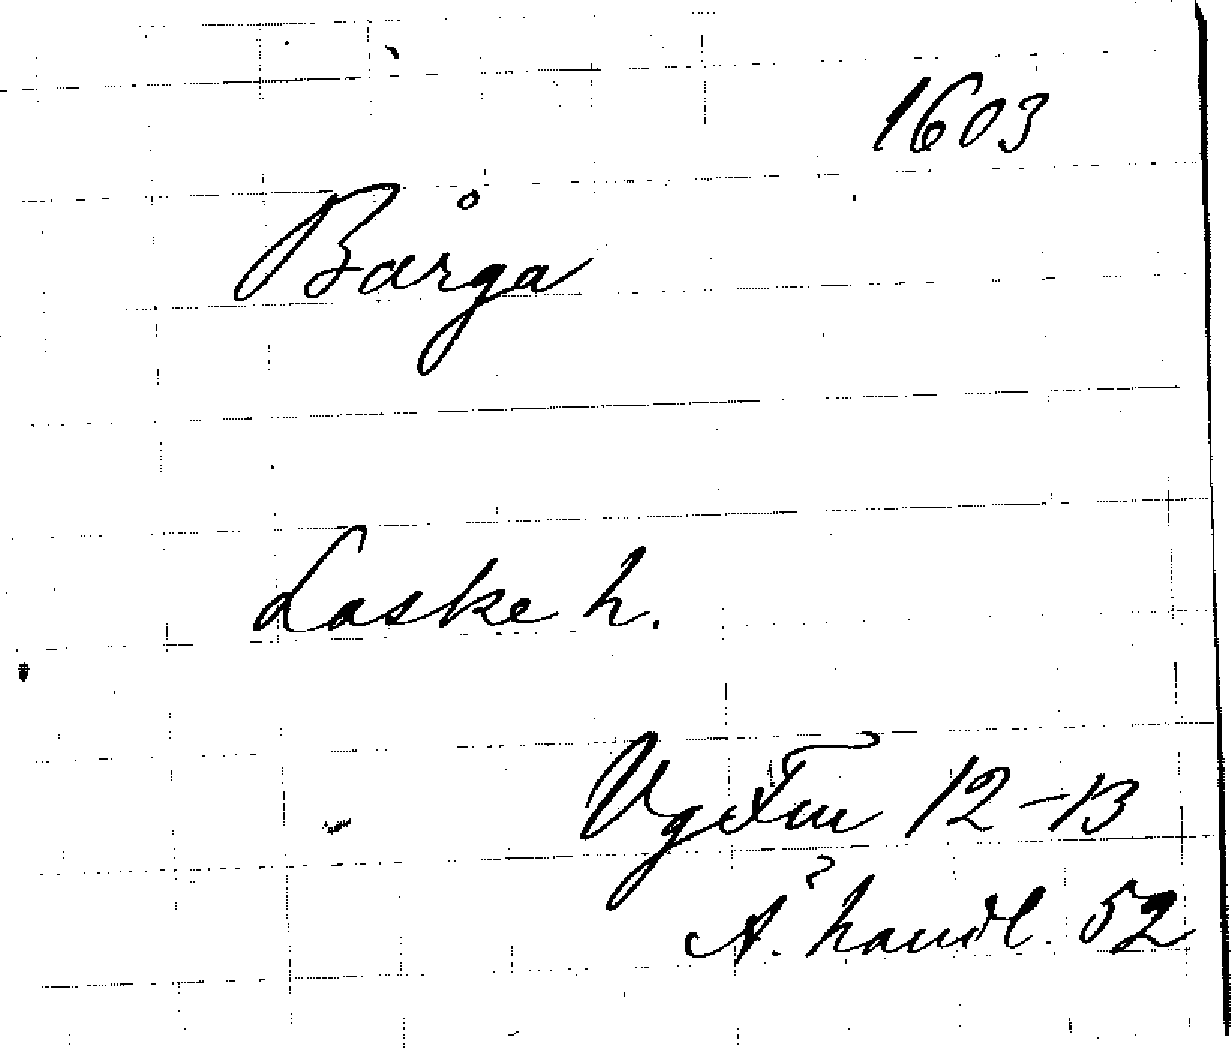 1603
Bårga
Laske h.
VgFm 12-13
Å. handl. 52